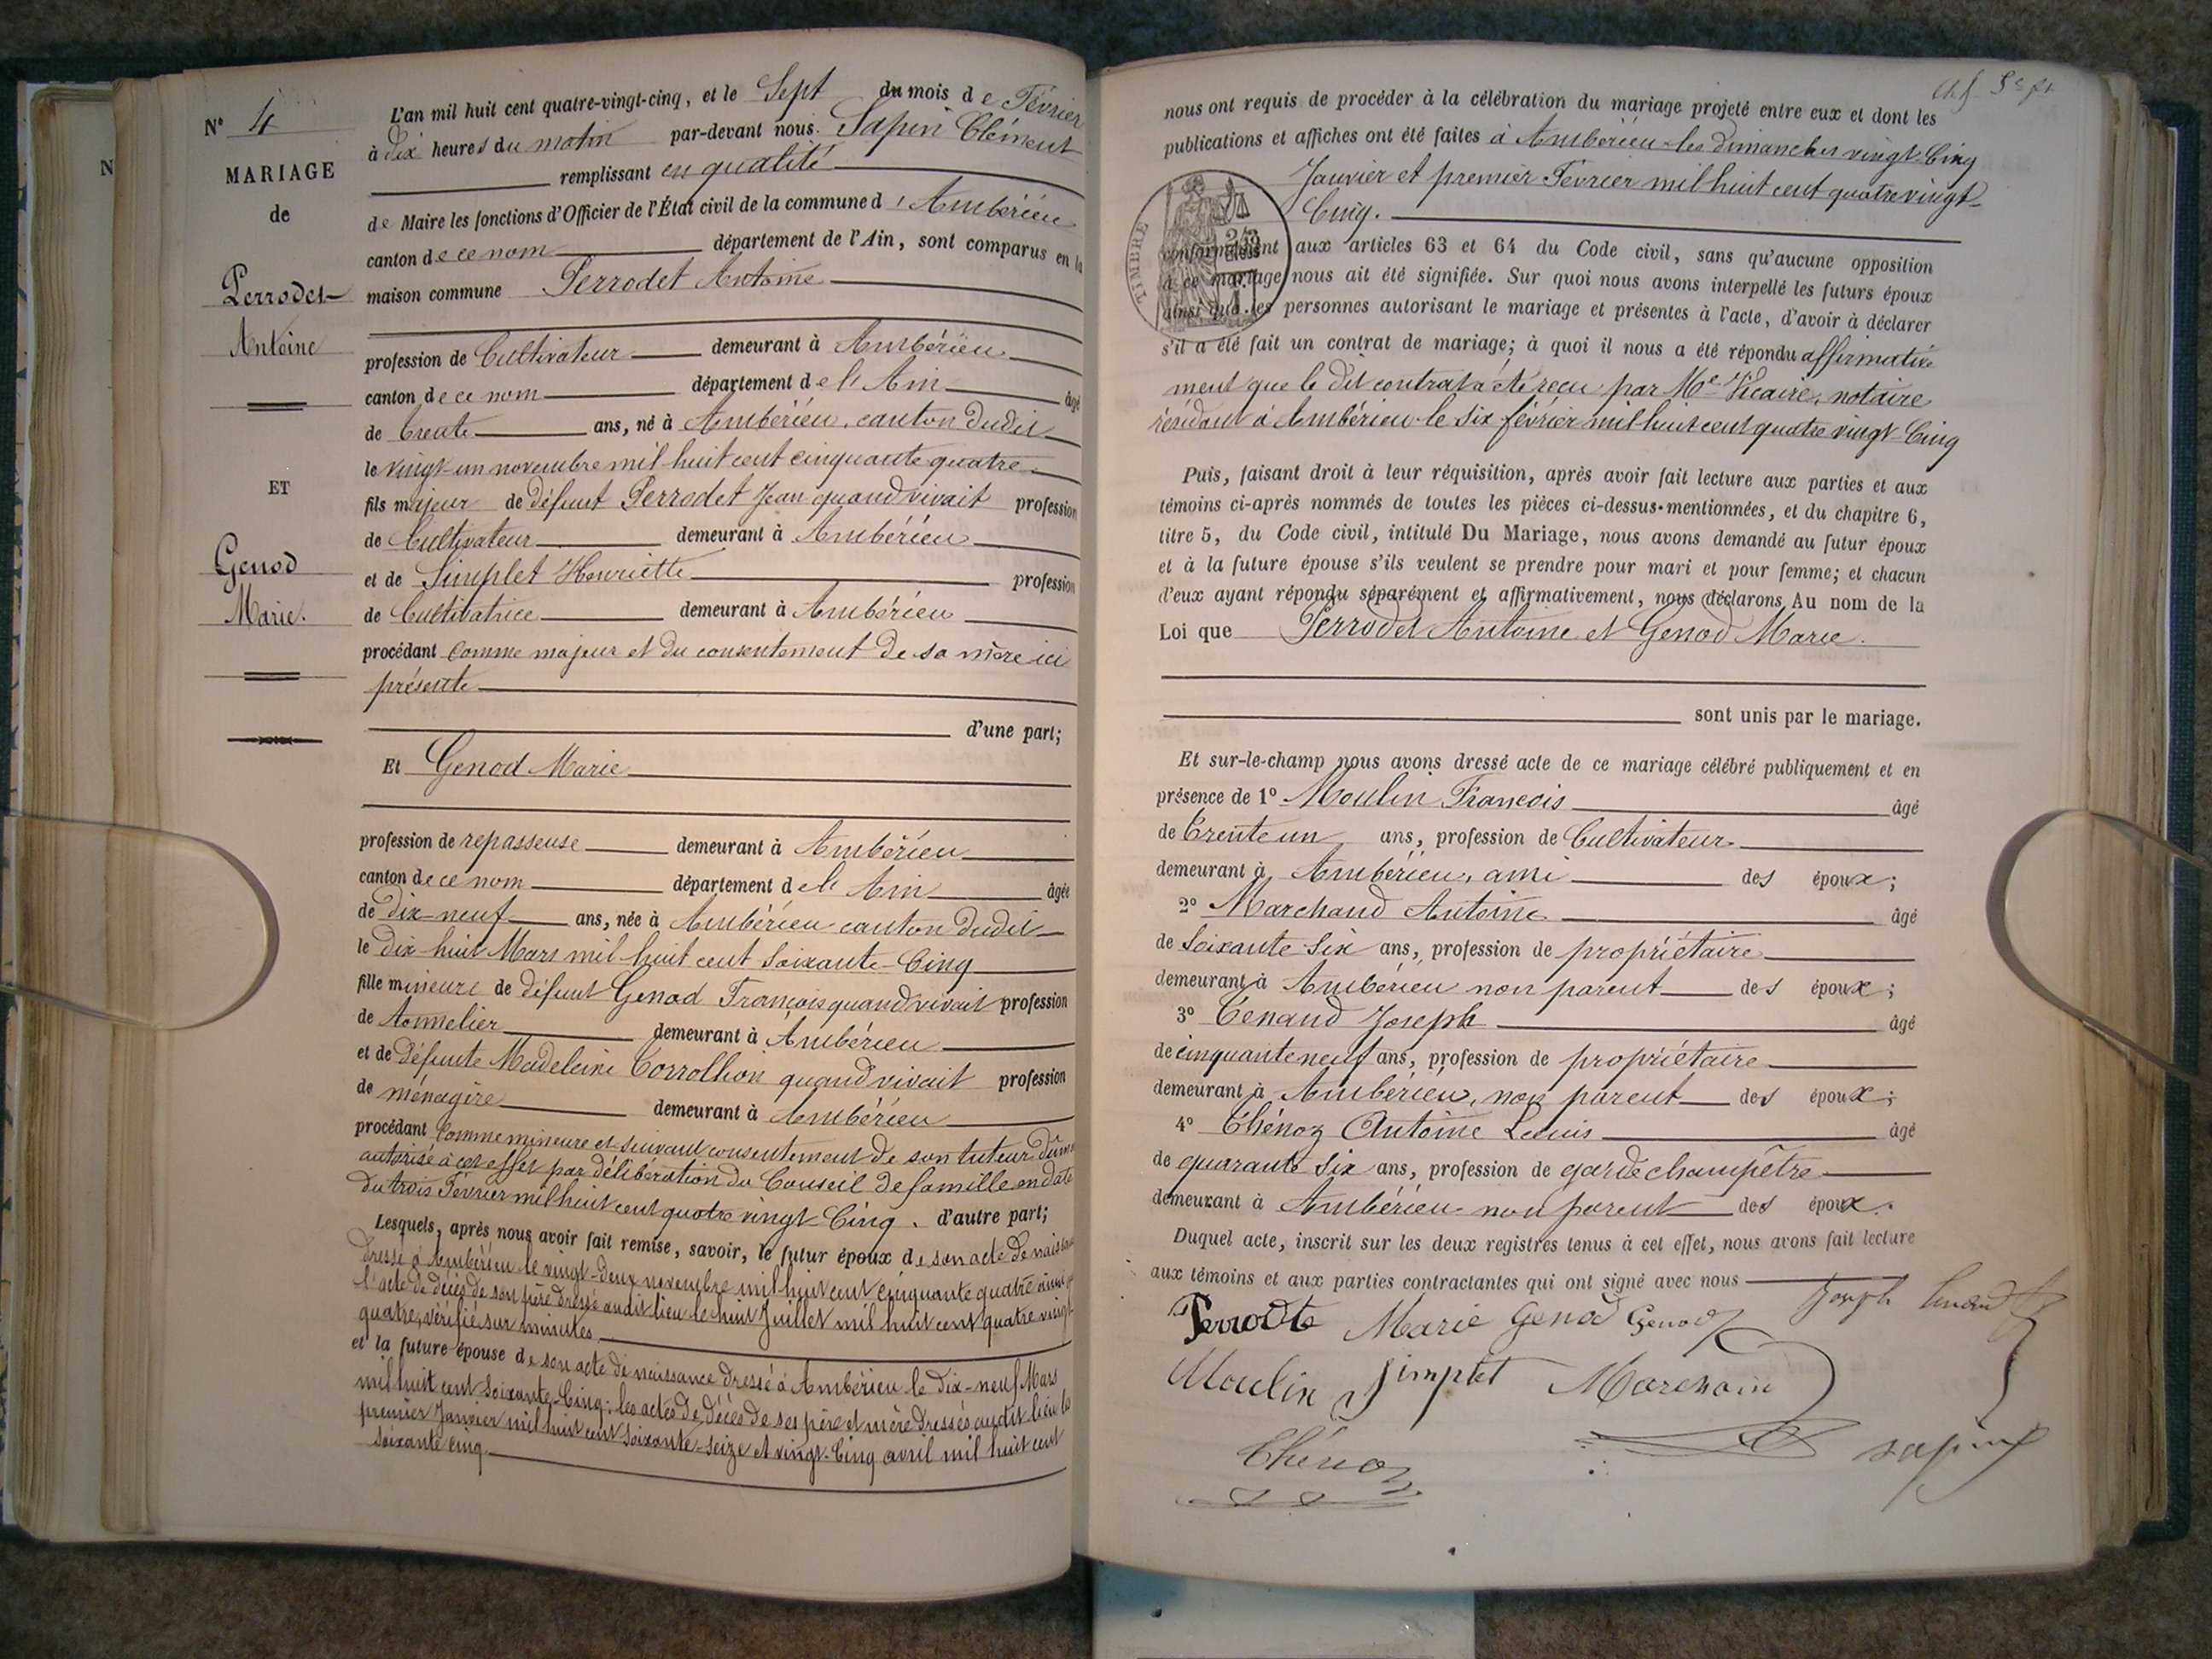 N° 4
MARIAGE
de
Perrodet
Antoine
ET
Genod
Marie.
L'an mil huit cent quatre-vingt-cinq, et le Sept du mois de Février
à dix heures du matin par-devant nous Sapin Clément
remplissant en qualité
de Maire les fonctions d'Officier de l'État civil de la commune d'Ambérieu
canton de ce nom département de l'Ain, sont comparus en la
maison commune Perrodet Antoine
profession de Cultivateur demeurant à Ambérieu
canton de ce nom département de l'Ain âgé
de trente ans, né à Ambérieu, canton dudit
le vingt-un novembre mil huit cent cinquante quatre
fils majeur de défunt Perrodet Jean quand vivait profession
de Cultivateur demeurant à Ambérieu
et de Simplet Henriette profession
de Cultivatrice demeurant à Ambérieu
procédant comme majeur et du consentement de sa mère ici
présente
d'une part;
Et Genod Marie
profession de repasseuse demeurant à Ambérieu
canton de ce nom département de l'Ain âgée
de dix-neuf ans, née à Ambérieu canton dudit
le dix huit Mars mil huit cent soixante-Cinq
fille mineure de défunt Genod François quand vivait profession
de tonnelier demeurant à Ambérieu
et de défunte Madeleine quand vivait profession
de ménagère demeurant à Ambérieu
procédant comme mineure et suivant consentement de son tuteur
autorisé à cet effet par délibération du Conseil de famille en date
du trois Février mil huit cent quatre vingt-Cinq. d'autre part;
Lesquels, après nous avoir fait remise, savoir, le futur époux de son acte de naissance
dressé à Ambérieu le vingt-deux novembre mil huit cent cinquante quatre ainsi
l'acte de décès de son père dressé audit lieu le huit Juillet mil huit cent quatre vingt
quatre, vérifié sur minutes
et la future épouse de son acte de naissance dressé à Ambérieu le dix-neuf Mars
mil huit cent soixante-Cinq; les actes de décès de ses père et mère dressés audit lieu les
premier Janvier mil huit cent soixante-seize et vingt-Cinq avril mil huit cent
soixante cinq
nous ont requis de procéder à la célébration du mariage projeté entre eux et dont les
publications et affiches ont été faites à Ambérieu les dimanches vingt-Cinq
Janvier et premier Février mil huit cent quatre vingt-
Cinq.
TIMBRE
conformément aux articles 63 et 64 du Code civil, sans qu'aucune opposition
à ce mariage nous ait été signifiée. Sur quoi nous avons interpellé les futurs époux
ainsi que les personnes autorisant le mariage et présentes à l'acte, d'avoir à déclarer
s'il a été fait un contrat de mariage; à quoi il nous a été répondu affirmative
ment que le dit contrat a été reçu par Me Vicaire, notaire
résidant à Ambérieu le six février mil huit cent quatre vingt-Cinq
Puis, faisant droit à leur réquisition, après avoir fait lecture aux parties et aux
témoins ci-après nommés de toutes les pièces ci-dessus mentionnées, et du chapitre 6,
titre 5, du Code civil, intitulé Du Mariage, nous avons demandé au futur époux
et à la future épouse s'ils veulent se prendre pour mari et pour femme; et chacun
d'eux ayant répondu séparément et affirmativement, nous déclarons Au nom de la
Loi que Perrodet Antoine et Genod Marie.
sont unis par le mariage.
Et sur-le-champ nous avons dressé acte de ce mariage célébré publiquement et en
présence de 1° Moulin François âgé
de trente un ans, profession de Cultivateur
demeurant à Ambérieu, ami des époux;
2° Marchand Antoine âgé
de soixante six ans, profession de propriétaire
demeurant à Ambérieu non parent des époux;
3° Tenand Joseph âgé
de cinquante neuf ans, profession de propriétaire
demeurant à Ambérieu, non parent des époux;
4° Thénoz Antoine Louis âgé
de quarante six ans, profession de garde champêtre
demeurant à Ambérieu non parent des époux.
Duquel acte, inscrit sur les deux registres tenus à cet effet, nous avons fait lecture
aux témoins et aux parties contractantes qui ont signé avec nous
Marie Genod Genod Joseph Tenand
Moulin Simplet Marchand
Thénoz Sapin